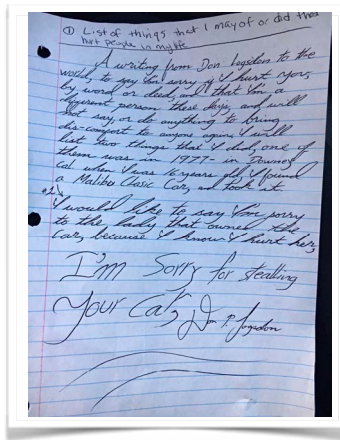 ① List of things that I may of or did that
hurt people in my life
A writing from Don Logsdon to the
world, to say I'm sorry if I hurt you,
by word or deed, and that I'm a
different person these days, and will
not say, or do anything to bring
dis-comfort to anyone again, I will
list two things that I did, one of
them was in 1977- in Downey
Cal when I was 16 years old, I found
a Malibu Clasic Car, and took it
#2
I would like to say I'm sorry
to the lady that owned the
Car, because I know I hurt her,
I'm Sorry for stealing
Your Car, Don P. Logsdon